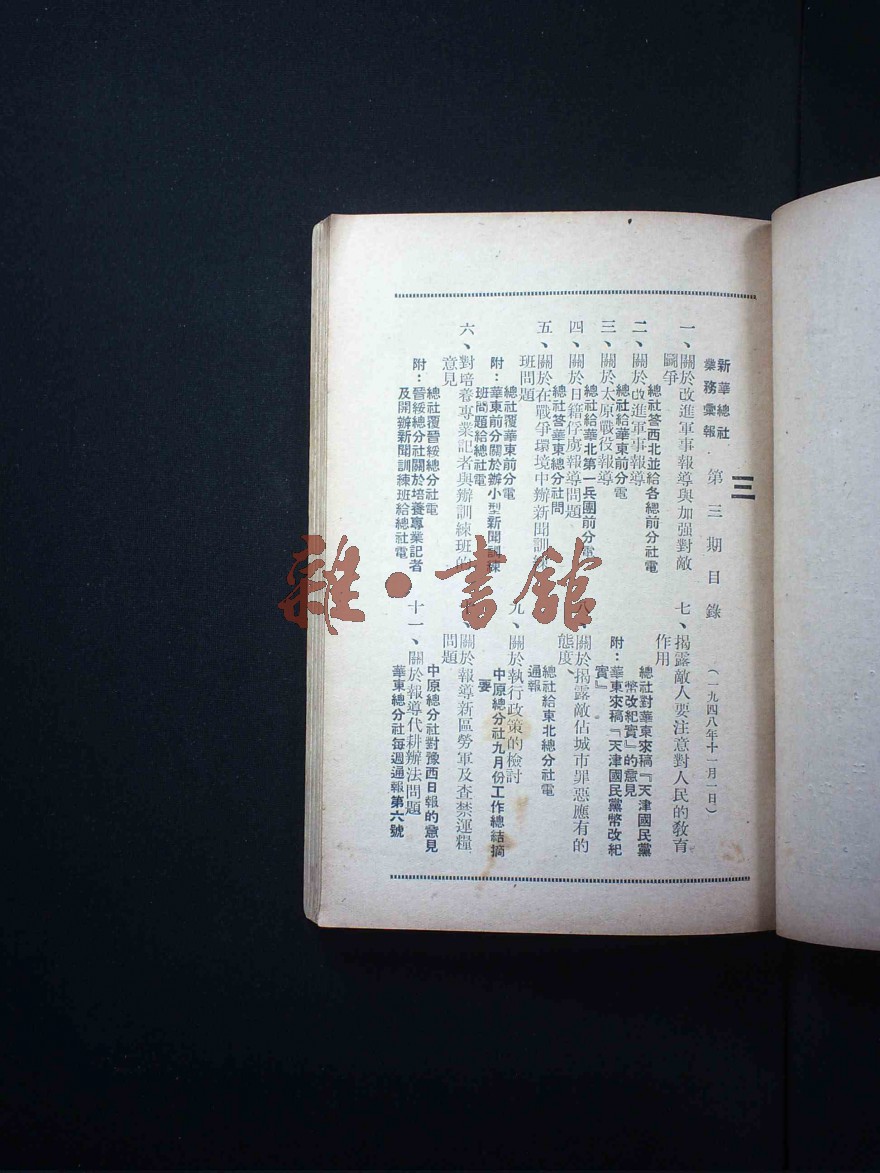 三
新華總社
業務彙報
第三期目錄
(一九四八年十一月一日)
一、關於改進軍事報導與加强對敵
圖爭
總社答西北並給各總前分社電
二、關於改進軍事報導
總社給華東前分電
三、關於太原戰役報導
總社給華北第一兵團前分電
四、關於日籍俘虜報導問題
總社答華東總分社問
五、關於在戰爭環境中辦新聞訓練
班問題
總社覆華東前分電
附：華東前分關於辦小型新聞訓練
班問題給總社電
六、對培養專業記者與辦訓練班的
意見
總社覆晉綏總分社電
附：晉綏總分社關於培養專業記者
及開辦新聞訓練班給總社電
七、揭露敵人要注意對人民的敎育
作用
總社對華東來稿『天津國民黨
幣改紀實』的意見
附：華東來稿『天津國民黨幣改紀
實』
八、關於揭露敵佔城市罪惡應有的
態度、
總社給東北總分社電
通報
九、關於執行政策的檢討
中原總分社九月份工作總結摘
要
十、關於報導新區勞軍及查禁運糧
問題
中原總分社對豫西日報的意見
十一、關於報導代耕辦法問題
華東總分社每週通報第六號
雜·書館